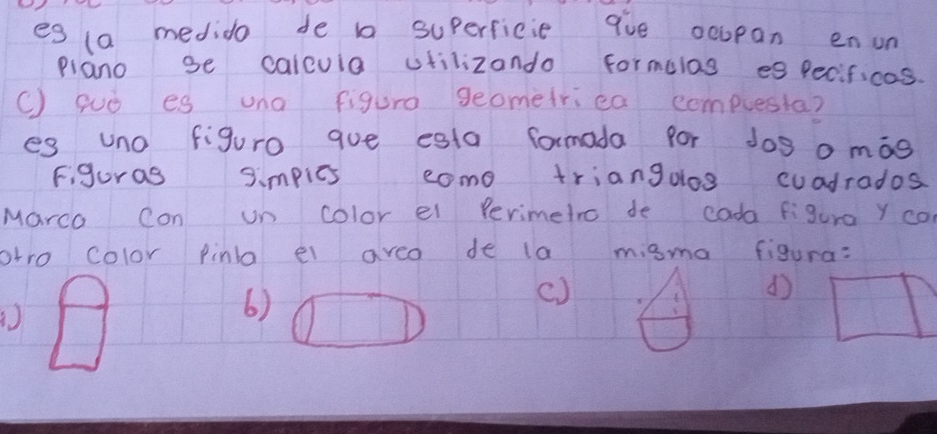 es la medida de la superficie que ocupan en un
plano se calcula utilizando formulas especificas.
c) qué es una figura geometrica compuesta?
es una figura que esta formada por dos o más
Figuras simples como triangulos cuadrados
Marca con un color el Perimetro de cada figura y con
otro color pinta el area de la misma figura:
b) c) d)